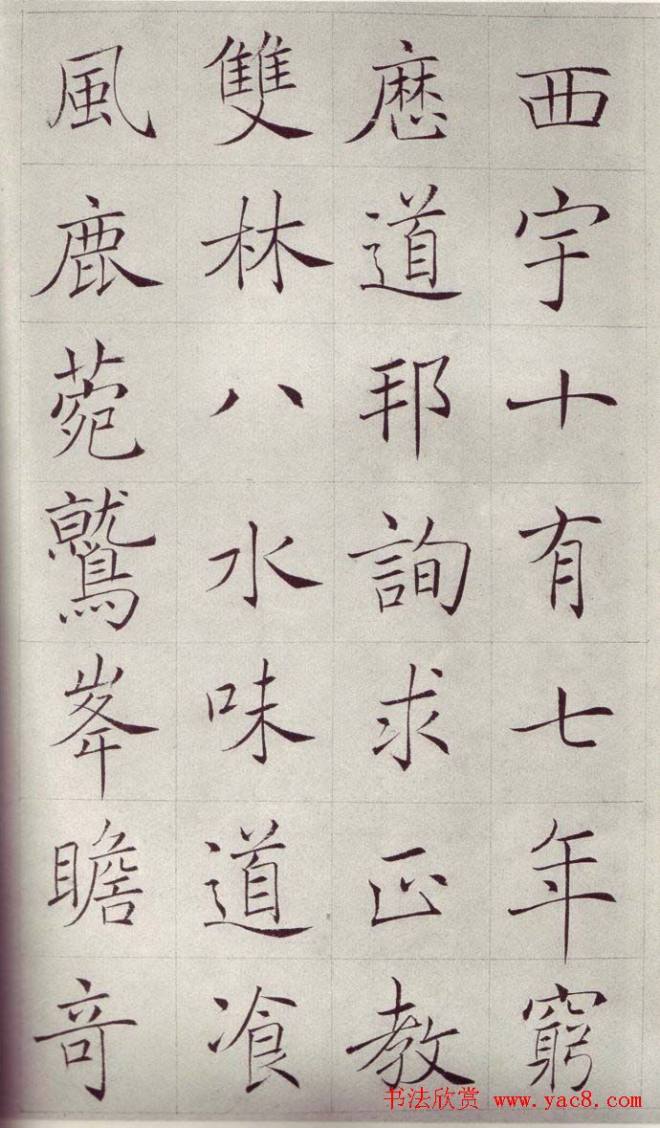 西宇十有七年窮
歷道邦詢求正教
雙林八水味道飡
風鹿菀鷲峯瞻竒
书法欣赏 www.yac8.com